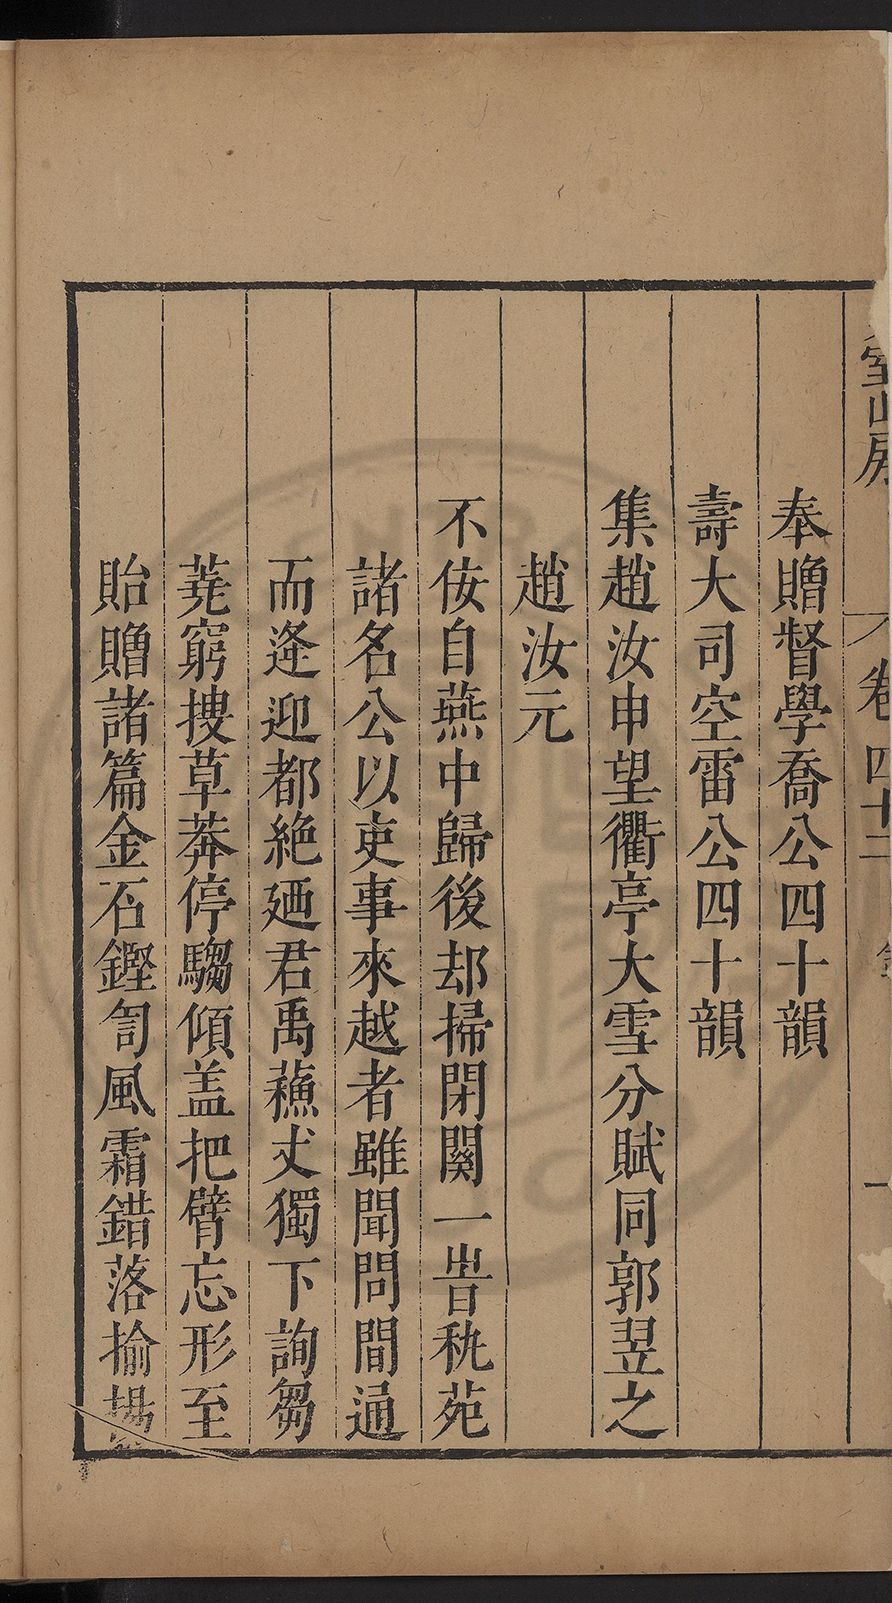 室山房 卷四十二 一
奉贈督學喬公四十韻
壽大司空雷公四十韻
集趙汝申望衢亭大雪分賦同郭翌之
趙汝元
不佞自燕中歸後却掃閉關一旹秇苑
諸名公以吏事來越者雖聞問間通
而逢迎都絶廼君禹蘓丈獨下詢芻
蕘窮搜草莽停騶傾盖把臂忘形至
貽贈諸篇金石鏗訇風霜錯落揄揚